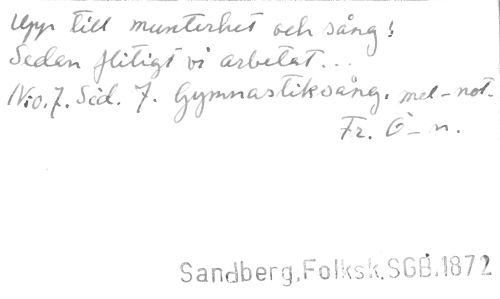 Upp till munterhet och sång!
Sedan flitigt vi arbetat...
N:o.7. Sid. 7. Gymnastiksång. mel-not.
Fr. Ö-n.
Sandberg,Folksk.SGB.1872